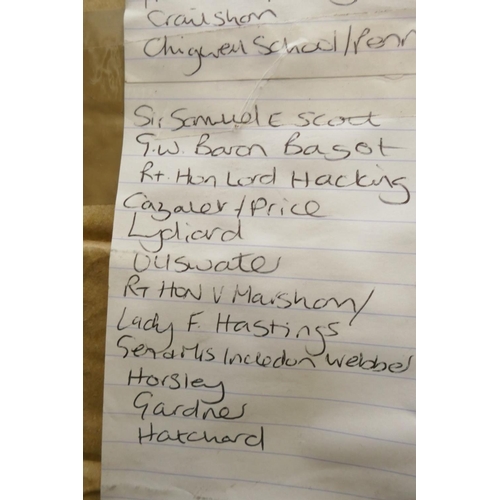 Crailsham
Chigwell School/Penn
Sir Samuel E Scott
G.W. Baron Bagot
Rt. Hon Lord Hacking
Cazaler/Price
Lydiard
Ullswater
RT HON V Marsham/
Lady F. Hastings
Incledon Webber
Horsley
Gardner
Hatchard